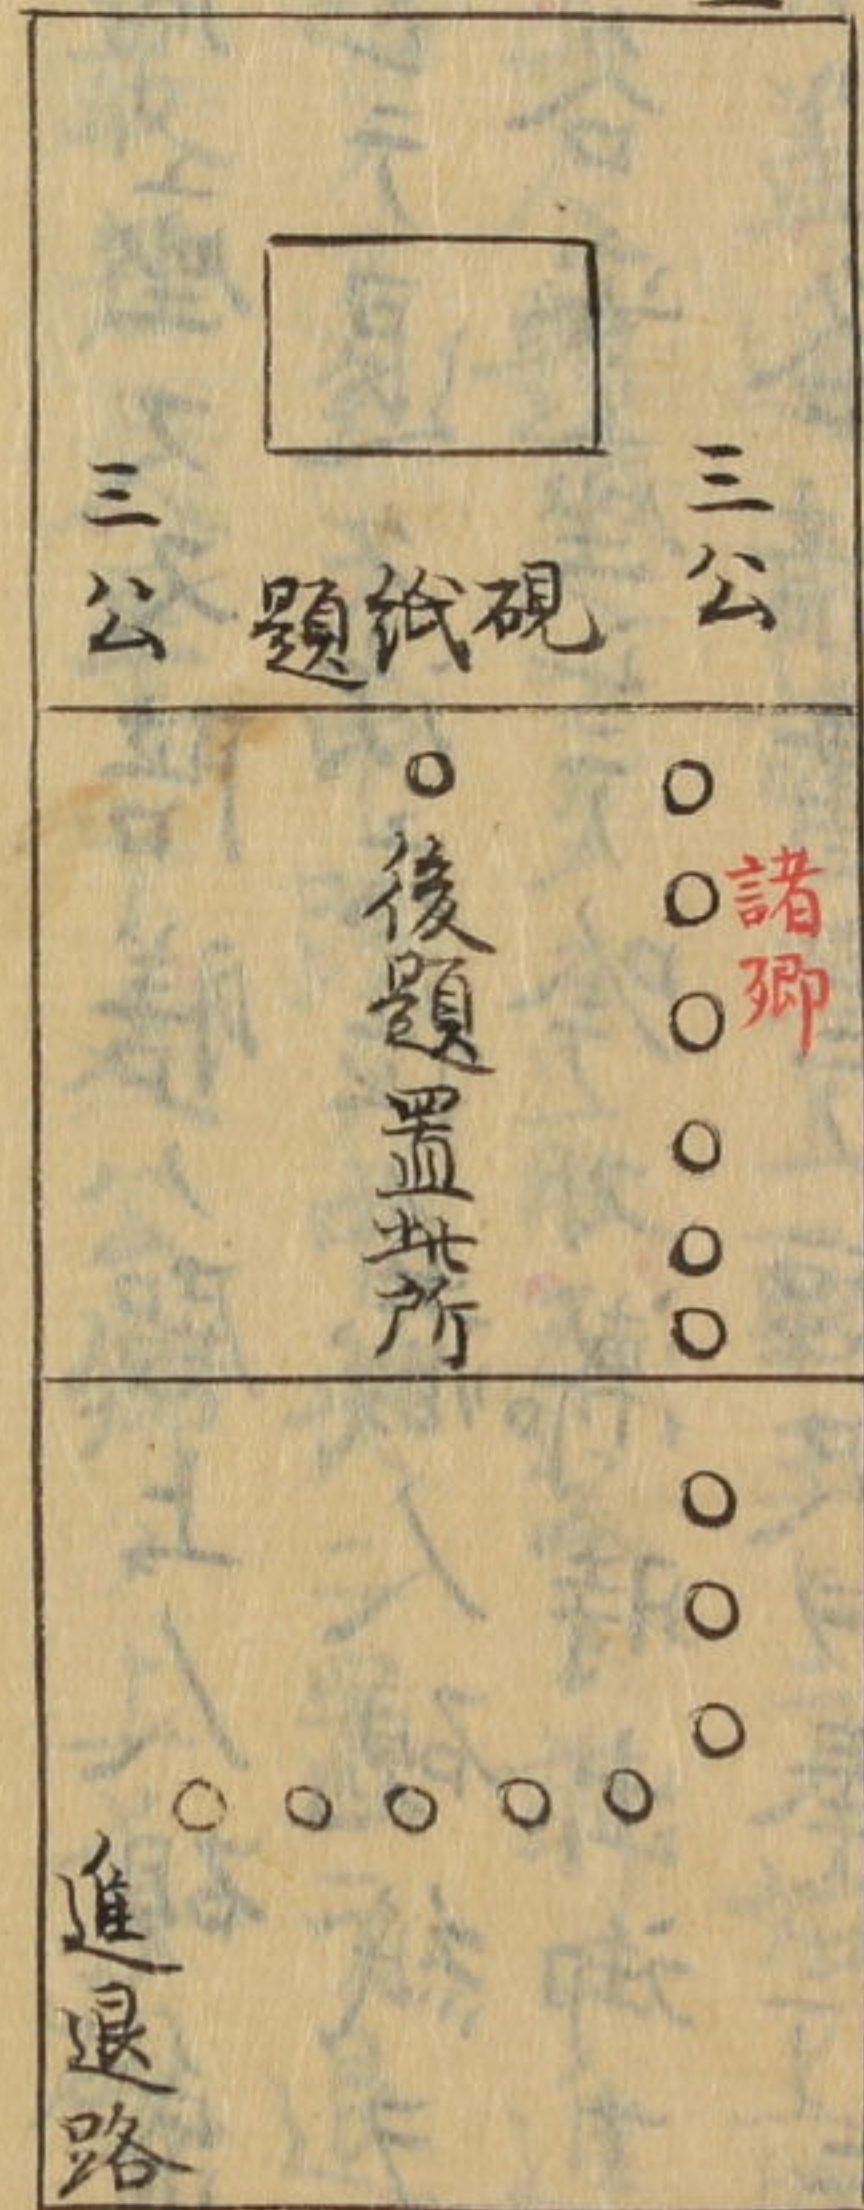 三公
硯紙題
三公
諸卿
後題置此所
進退路